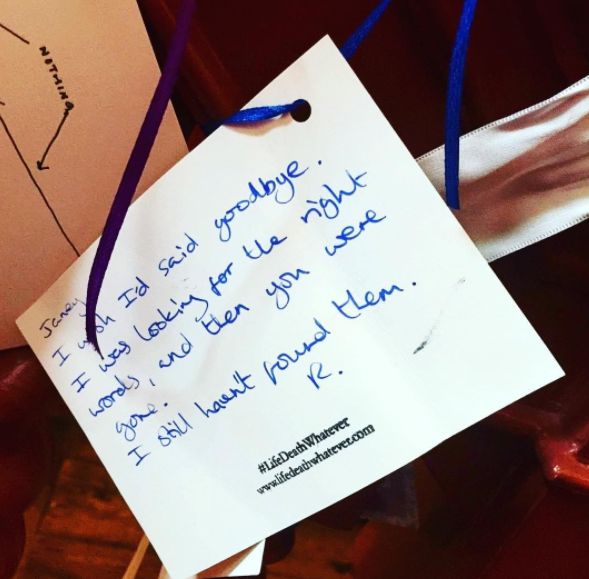 NOTHING
Janey
I wish I'd said goodbye.
I was looking for the right
words, and then you were
gone.
I still haven't found them.
R.
#LifeDeathWhatever
www.lifedeathwhatever.com